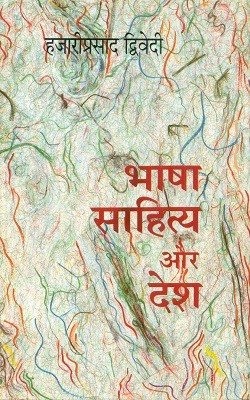 हजारीप्रसाद द्विवेदी
भाषा
साहित्य
और
देश